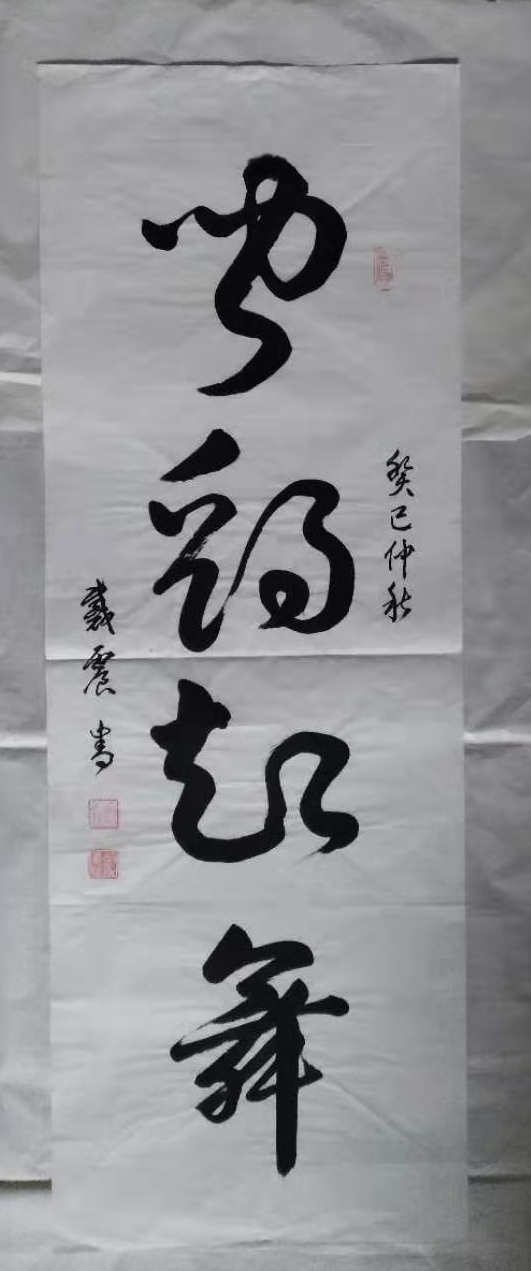 癸巳仲秋
闻鸡起舞
戴震书